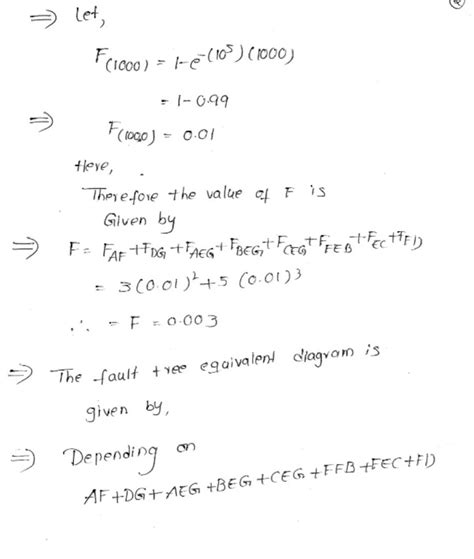 ⇒ Let,
F(1000) = 1-e^-(10^5)(1000)
= 1-0.99
⇒ F(1000) = 0.01
Here,
Therefore the value of F is
Given by
⇒ F = F_AF + F_DG + F_AEG + F_BEG + F_CEG + F_FEB + F_EC + F_FD
= 3(0.01)^2 + 5 (0.01)^3
∴ = F = 0.003
⇒ The fault tree equivalent diagram is
given by,
⇒ Depending on
AF+DG+AEG+BEG+CEG+FFB+FEC+FD